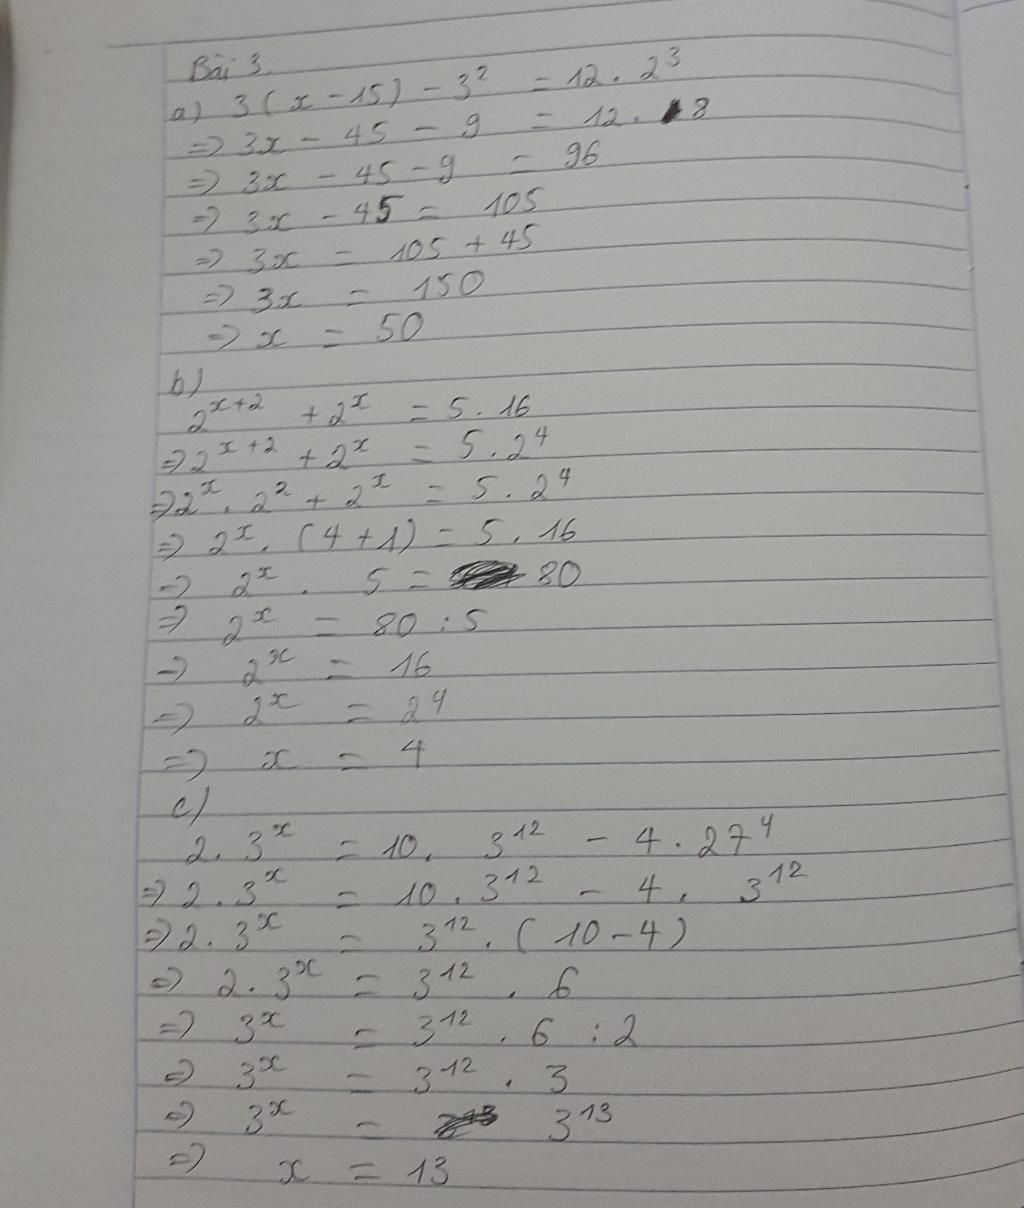 Bài 3
a) 3(x - 15) - 3² = 12 . 2³
=> 3x - 45 - 9 = 12 . 8
=> 3x - 45 - 9 = 96
=> 3x - 45 = 105
=> 3x = 105 + 45
=> 3x = 150
=> x = 50
b)
2ˣ⁺² + 2ˣ = 5 . 16
=> 2ˣ⁺² + 2ˣ = 5 . 2⁴
=> 2ˣ . 2² + 2ˣ = 5 . 2⁴
=> 2ˣ . (4 + 1) = 5 . 16
=> 2ˣ . 5 = 80
=> 2ˣ = 80 : 5
=> 2ˣ = 16
=> 2ˣ = 2⁴
=> x = 4
c)
2 . 3ˣ = 10 . 3¹² - 4 . 27⁴
=> 2 . 3ˣ = 10 . 3¹² - 4 . 3¹²
=> 2 . 3ˣ = 3¹² . (10 - 4)
=> 2 . 3ˣ = 3¹² . 6
=> 3ˣ = 3¹² . 6 : 2
=> 3ˣ = 3¹² . 3
=> 3ˣ = 3¹³
=> x = 13